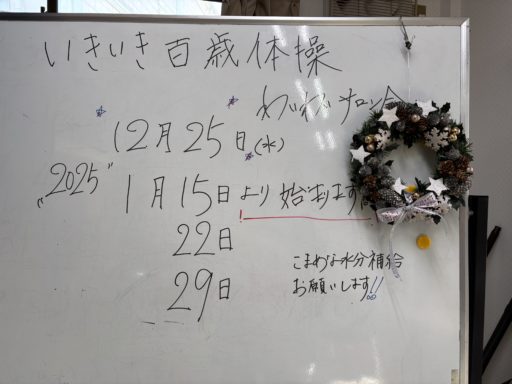 いきいき百歳体操
わいわいサロン会
12月25日(水)
"2025" 1月15日より始まります!
22日
29日
こまめな水分補給
お願いします!!